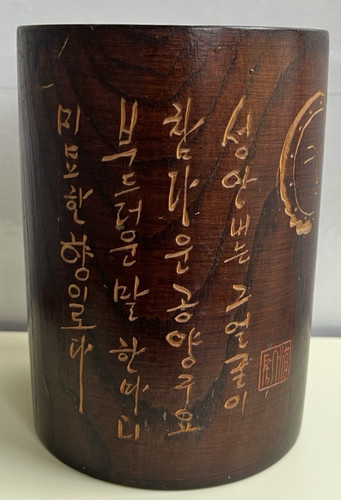 성안내는 그얼굴이
참다운 공양구요
부드러운 말 한마디
미묘한 향이로다